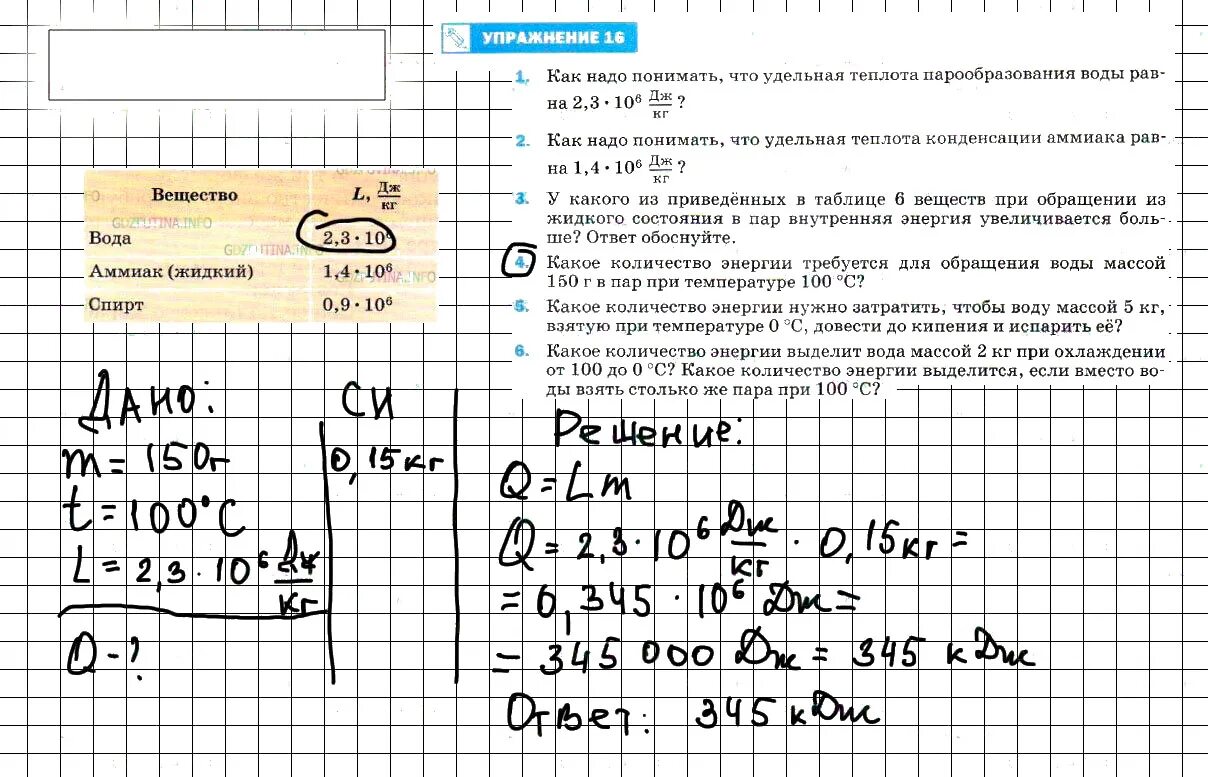 УПРАЖНЕНИЕ 16
1. Как надо понимать, что удельная теплота парообразования воды рав-
на 2,3 · 10⁶ Дж/кг ?
2. Как надо понимать, что удельная теплота конденсации аммиака рав-
на 1,4 · 10⁶ Дж/кг ?
3. У какого из приведённых в таблице 6 веществ при обращении из
жидкого состояния в пар внутренняя энергия увеличивается боль-
ше? Ответ обоснуйте.
4. Какое количество энергии требуется для обращения воды массой
150 г в пар при температуре 100 °С?
5. Какое количество энергии нужно затратить, чтобы воду массой 5 кг,
взятую при температуре 0 °С, довести до кипения и испарить её?
6. Какое количество энергии выделит вода массой 2 кг при охлаждении
от 100 до 0 °С? Какое количество энергии выделится, если вместо во-
ды взять столько же пара при 100 °С?
Вещество L, Дж/кг
GDZPUTINA.INFO
Вода 2,3 · 10⁶
GDZPUTINA.INFO
Аммиак (жидкий) 1,4 · 10⁶
Спирт 0,9 · 10⁶
Дано: СИ
m = 150г 0,15кг
t = 100°С
L = 2,3 · 10⁶ Дж/кг
Q - ?
Решение:
Q = Lm
Q = 2,3 · 10⁶ Дж/кг · 0,15кг =
= 0,345 · 10⁶ Дж =
= 345 000 Дж = 345 кДж
Ответ: 345 кДж